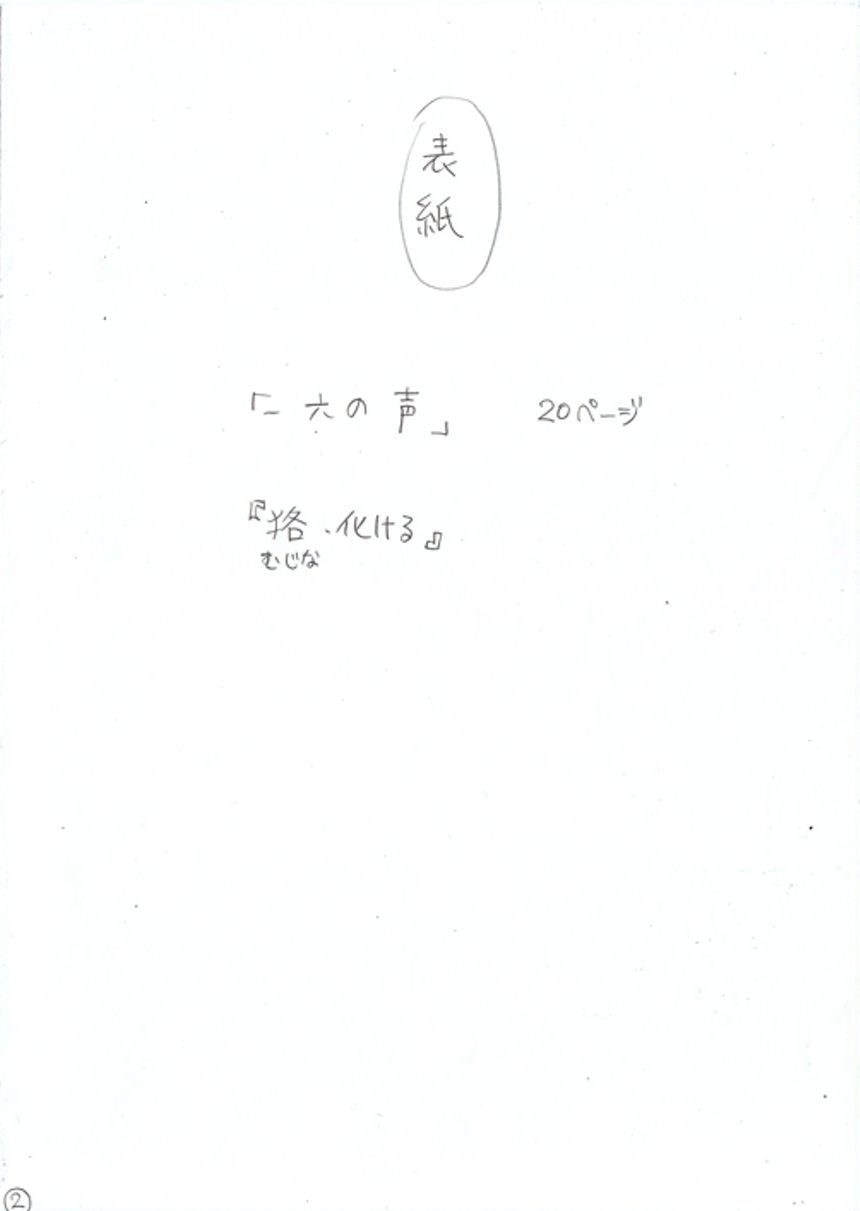 表紙
「一六の声」 20ページ
『狢、化ける』
むじな
②